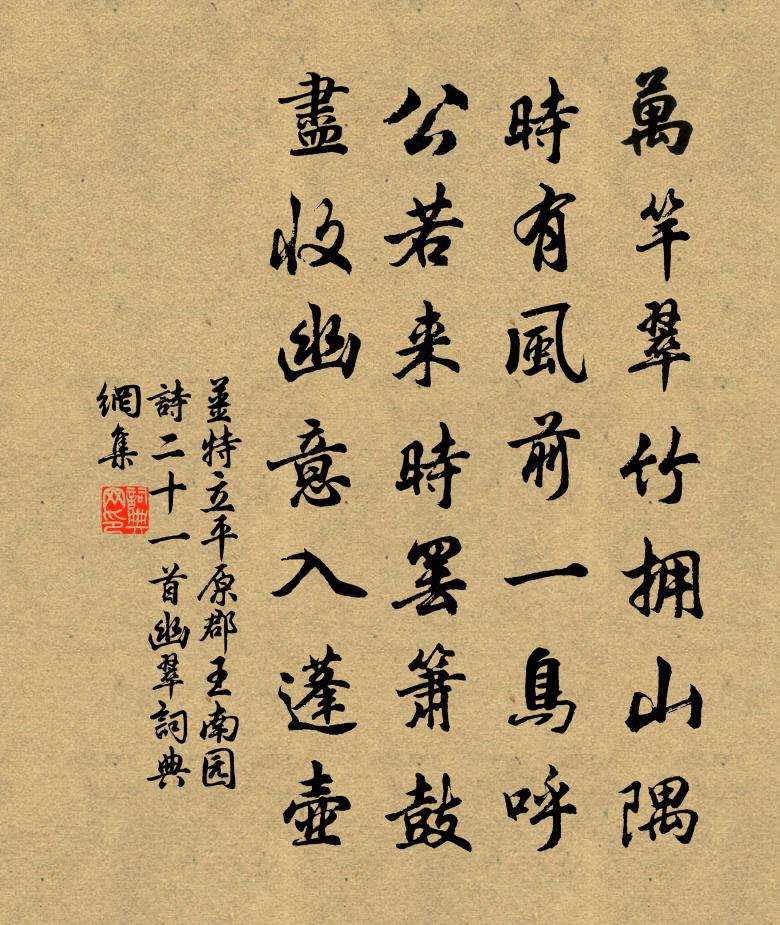 萬竿翠竹拥山隅
時有風前一鳥呼
公若来時罢箫鼓
盡收幽意入蓬壺
姜特立平原郡王南园
詩二十一首幽翠詞典
網集
詞典网印